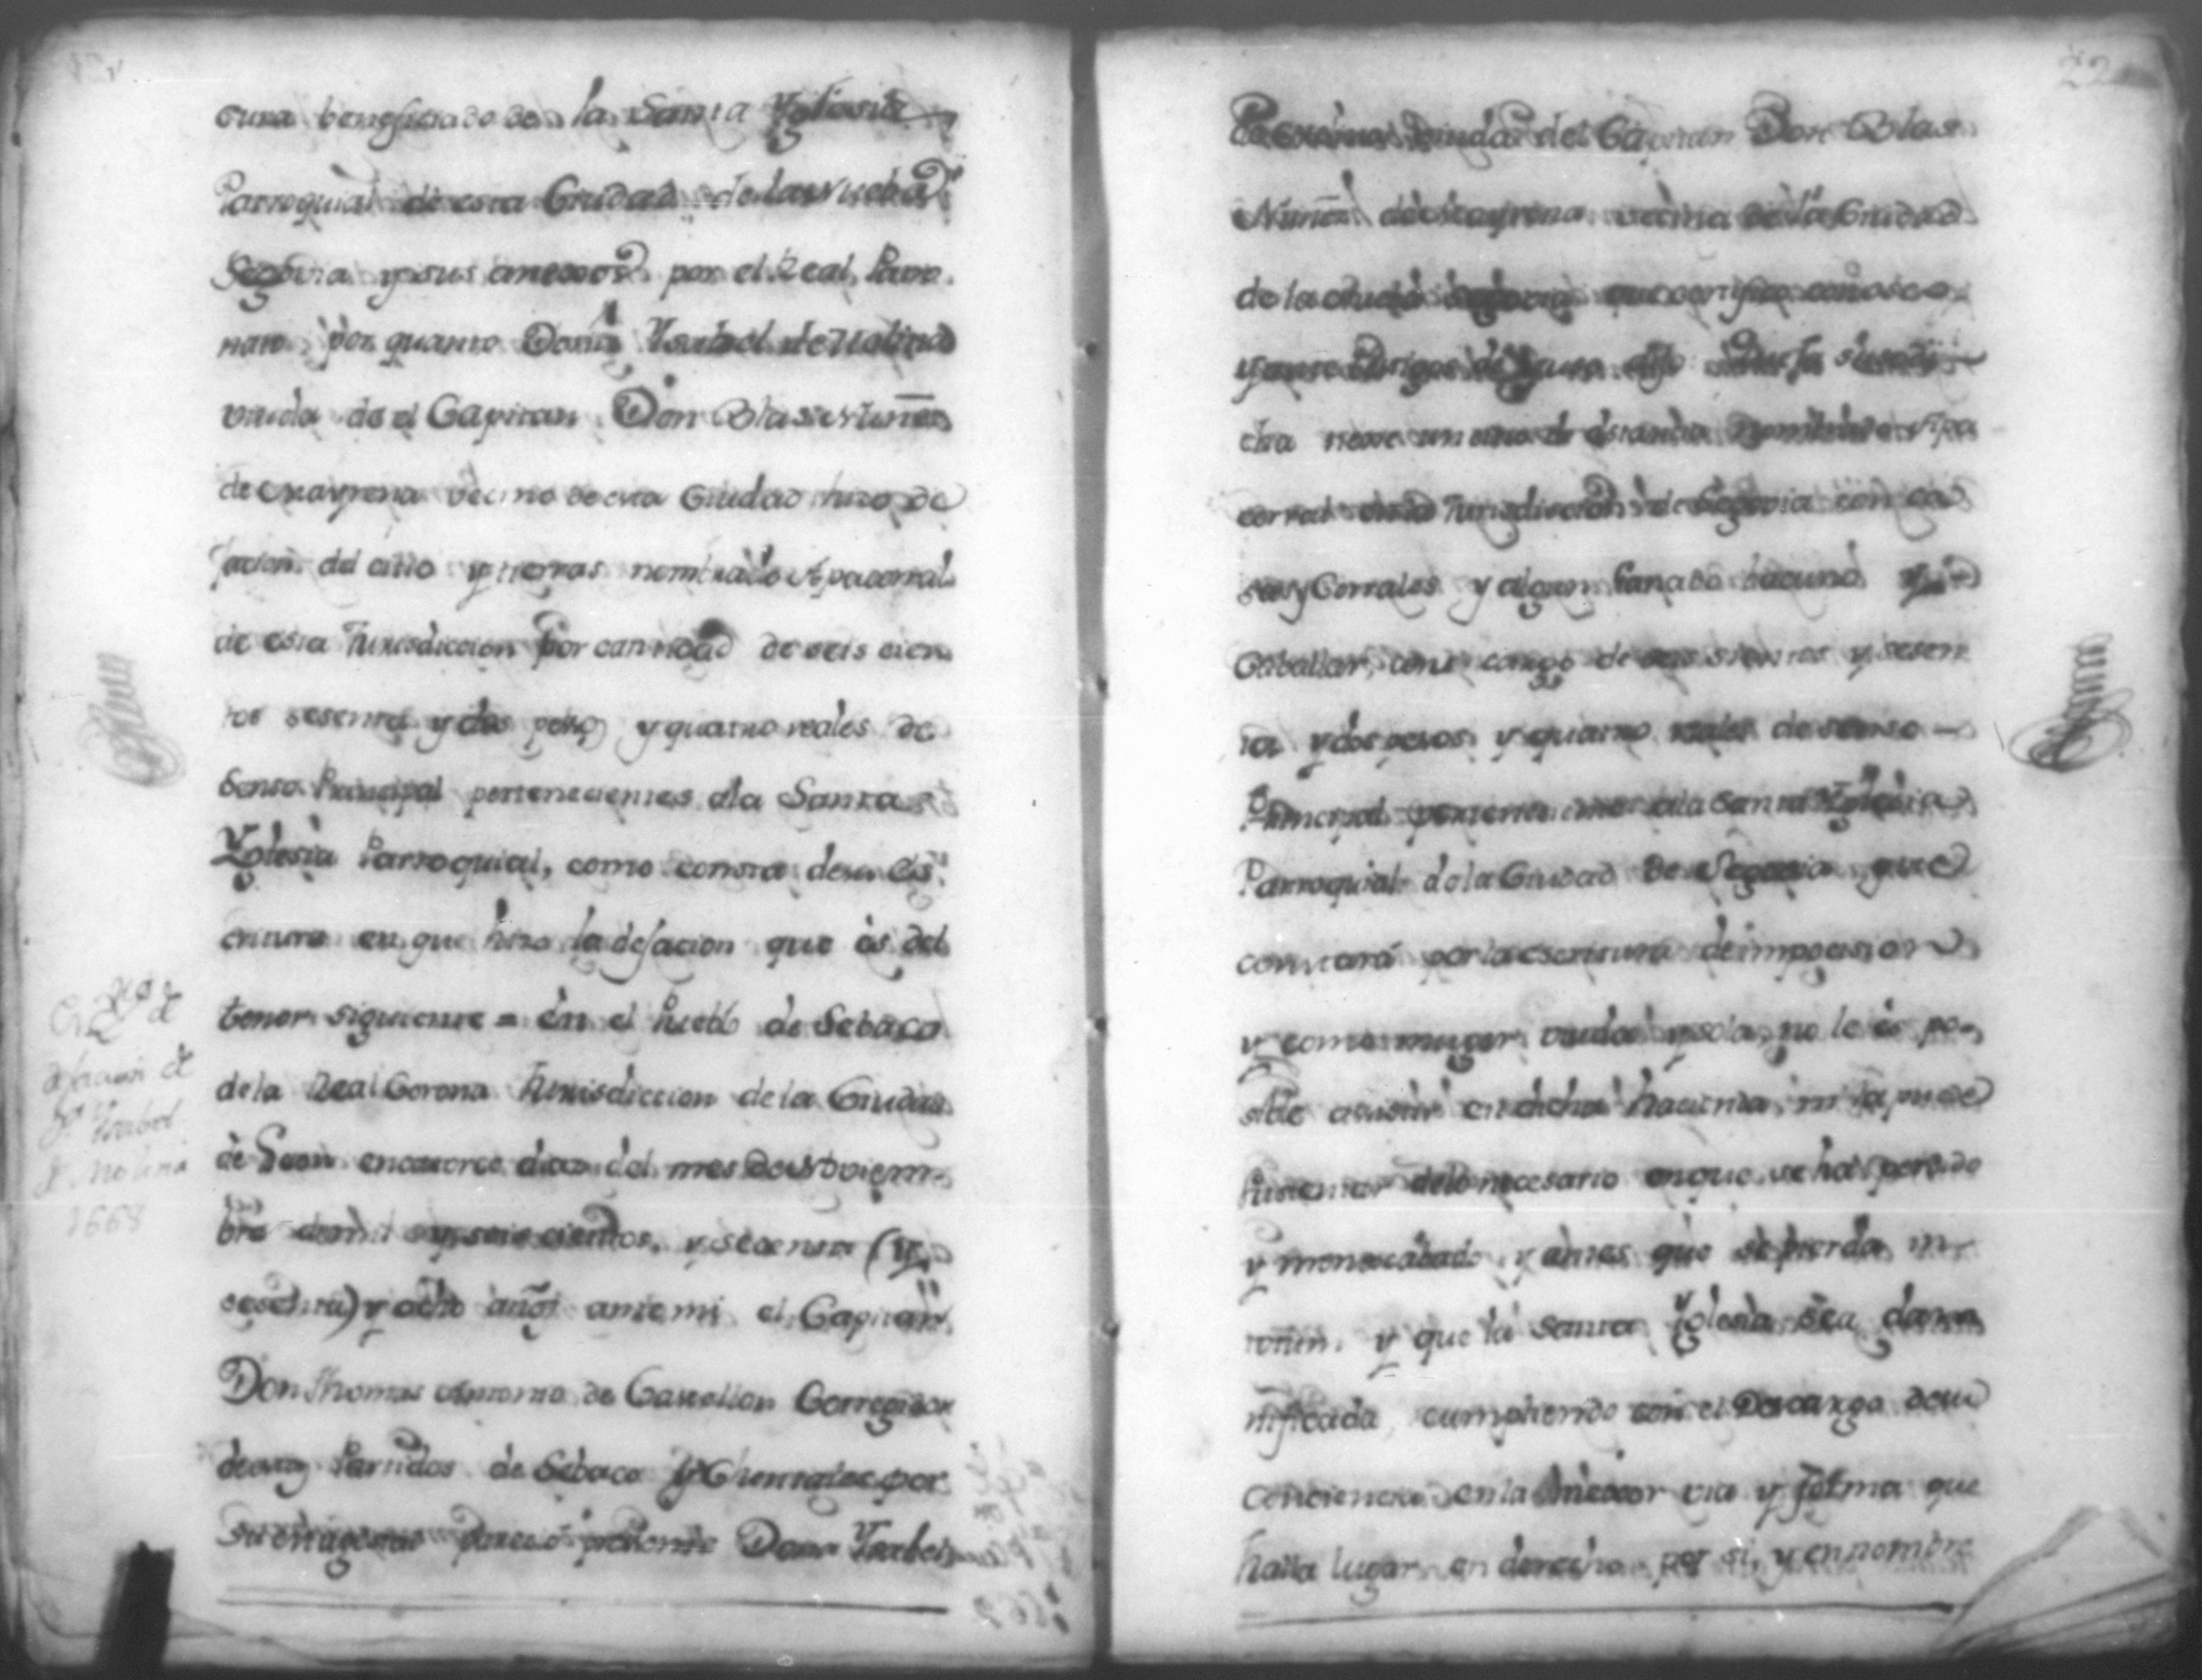 cura beneficiado de la Santa Yglesia
Parroquial de esta Ciudad de la Nueba
Segovia y sus anexos por el Real Patro
nato, por quanto Doña Ysabel de Molina
viuda de el Capitan Don Blas Nuñes
de Mayrena vecino de esta Ciudad hizo de
jacion del citio y tierras nombrado Apacorral
de esta Jurisdiccion por cantidad de seis cien
tos sesenta y dos pesos y quatro reales de
Censo Principal pertenecientes ala Santa
Yglesia Parroquial, como consta de su Es
critura en que hizo la dejacion que és del
tenor siguiente = én el Pueblo de Sebaco
de la Real Corona Jurisdiccion de la Ciudad
de Leon en catorce dias del mes de Noviem
bre de mil y seis cientos, y sesenta (y
sesenta) y ocho años ante mi el Capitan
Don Thomas Antonio de Castellon Corregidor
de los Partidos de Sebaco y Chontales por
Su Magestad parecio presente Doña Ysabel
Ess.ra de
dejacion de
D.a Ysabel
de Molina
1668
22
viuda del Capitan Don Blas
Nuñes de Mayrena vecina de la Ciudad
de la Nueba Segovia que certifico conosco
y ante testigos de yuso dijo
cha tiene un citio de estancia nombrado Apa
corral en la Jurisdiccion de Segovia con ca
sas y Corrales y algun Ganado bacuno y
Caballar, con cargo de seis sientos y sesen
ta y dos pesos y quatro reales de senso
Principal pertenecientes ala Santa Yglesia
Parroquial de la Ciudad de Segovia que
constará por la escritura de imposision
y como muger viuda y sola, no le és po
sible asistir en dicha hacienda, ni la puede
fomentar de lo necesario en que se há perdido
y menoscabado y antes que se pierda in
totum. y que la Santa Yglesia sea dam
nificada, cumpliendo con el Descargo de su
Conciencia en la mexor via y forma que
halla lugar en derecho por si, y en nombre